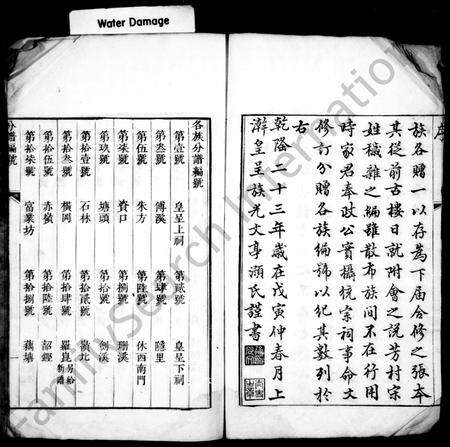 Water Damage
序
族各贈一以存為下屆合修之張本
其從前古樓日就附會之說芳村宗
姓穢雜之編雖散布族間不在行用
時家君奉政公實攝統宗祠事命文
修訂分贈各族編號以紀其數列於
右
乾隆二十三年歲在戊寅仲春月上
澣皇呈族光文亭瀕氏謹書
各族分譜編號
第壹號 皇呈上祠 第貳號 皇呈下祠
第叁號 傅溪 第肆號 隱里
第伍號 朱方 第陸號 休西南門
第柒號 資口 第捌號 珊溪
第玖號 塘頭 第拾號 劍溪
第拾壹號 石林 第拾貳號 漢北
第拾叁號 橫岡 第拾肆號 羅崑 易給新譜
第拾伍號 赤嶺 第拾陸號 韶鏗
第拾柒號 富業坊 第拾捌號 藕塘
分譜編號 一
FamilySearch International